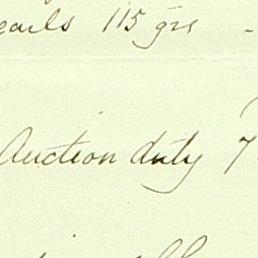 earls 115 grs -
Auction duty 7